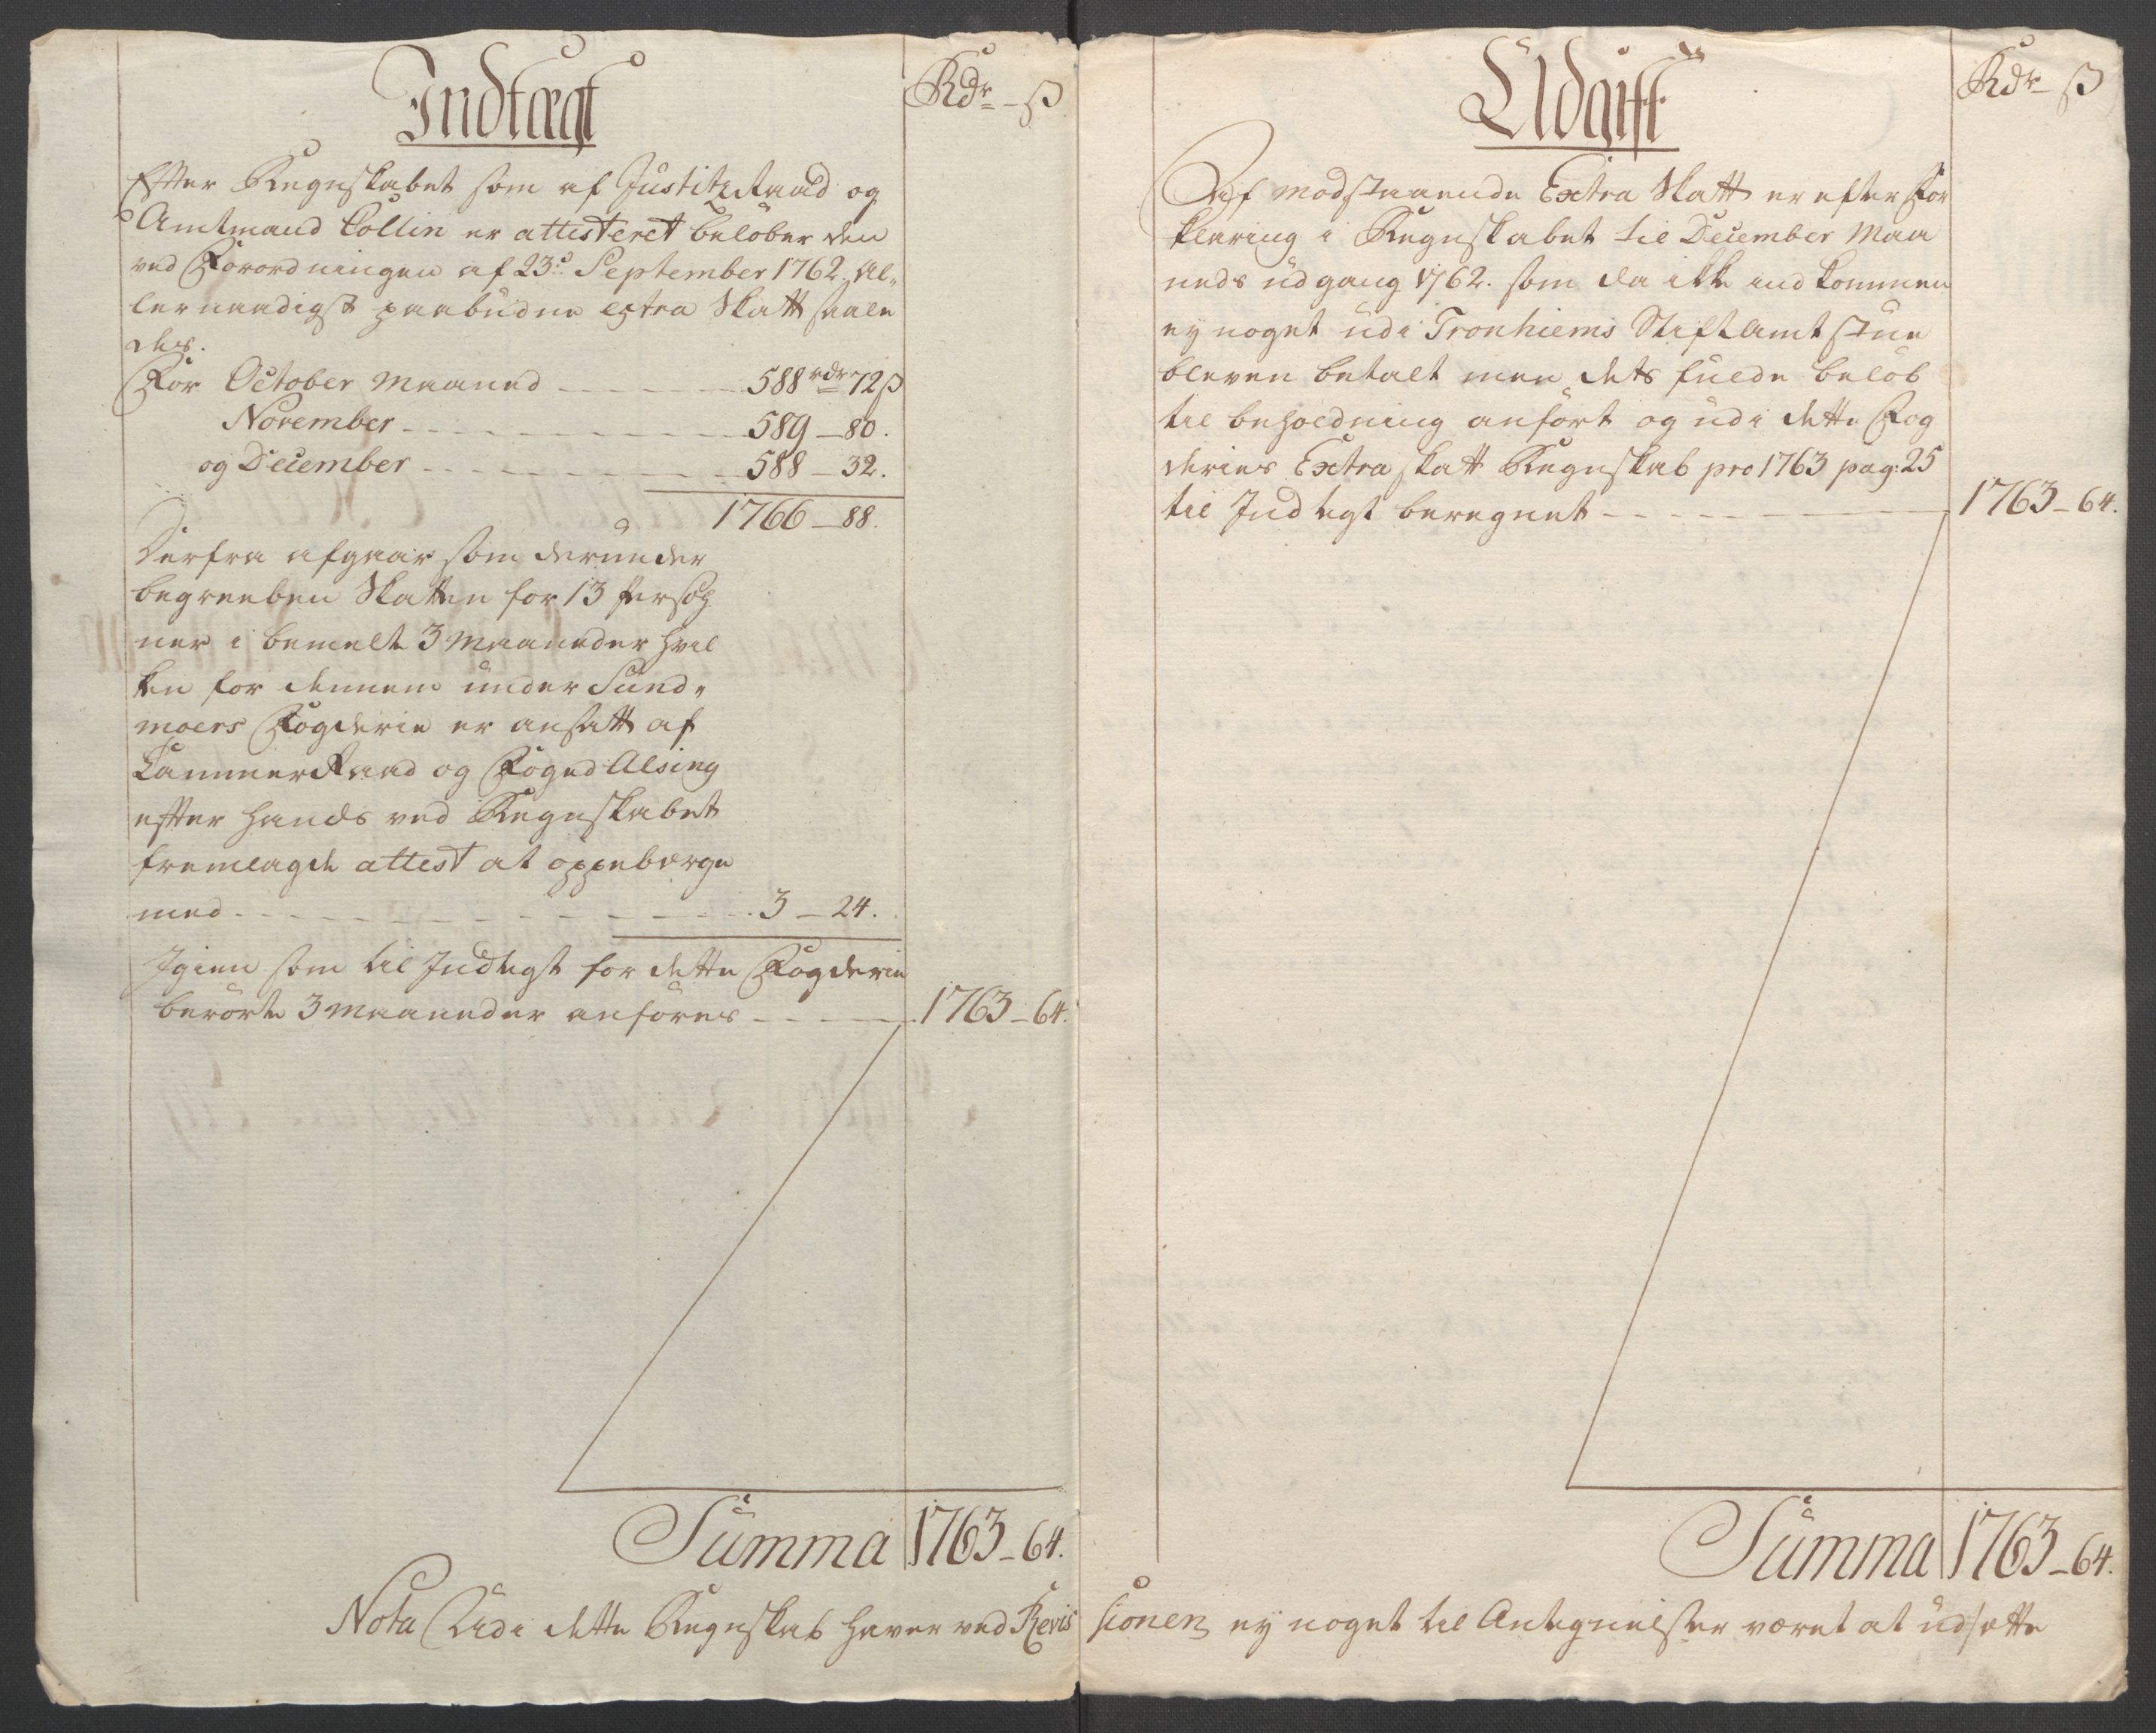 Indtægt
Rdr - ß
Efter Regnskabet som af Justitz Raad og
Amtmand Collin er attesteret beløber den
ved Forordningen af 23de September 1762. Al-
lernaadigst paabudne extra Skatt saale
des.
For October Maaned 588 rdr 72 ß
November 589 - 80.
og December 588 - 32.
1766 - 88.
Derfra afgaar som derunder
begreeben Skatten for 13 Persoh
ner i bemelte 3 Maaneder hvil
ken for dennem under Sund-
moers Fogderie er ansatt af
Cammer Raad og Foged Alsing
efter hands ved Regnskabet
fremlagde attest at oppebærge
med 3 - 24.
Igien som til Indtegt for dette Fogderie
berørte 3 Maaneder anføres 1763 - 64.
Summa 1763 - 64.
Udgift
Rdr - ß
Af modstaaende Extra Skatt er efter For
klaring i Regnskabet til December Maa
neds udgang 1762. som da ikke ind kommen
ey noget udi Tronhiems Stiftamt stue
bleven betalt men dets fulde beløb
til beholdning anført og udi dette Fog
deries Extra skatt Regnskab pro 1763 pag: 25
til Indtegt beregnet 1763 - 64.
Summa 1763 - 64.
Nota Udi dette Regnskab haver ved Revis sionen ey noget til Antegnelser været at udsætte